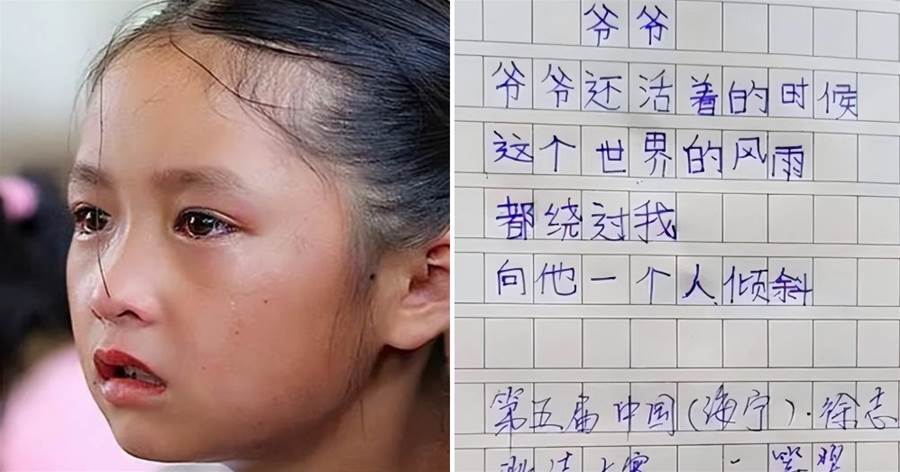 爷爷
爷爷还活着的时候
这个世界的风雨
都绕过我
向他一个人倾斜
第五届中国(海宁)·徐志